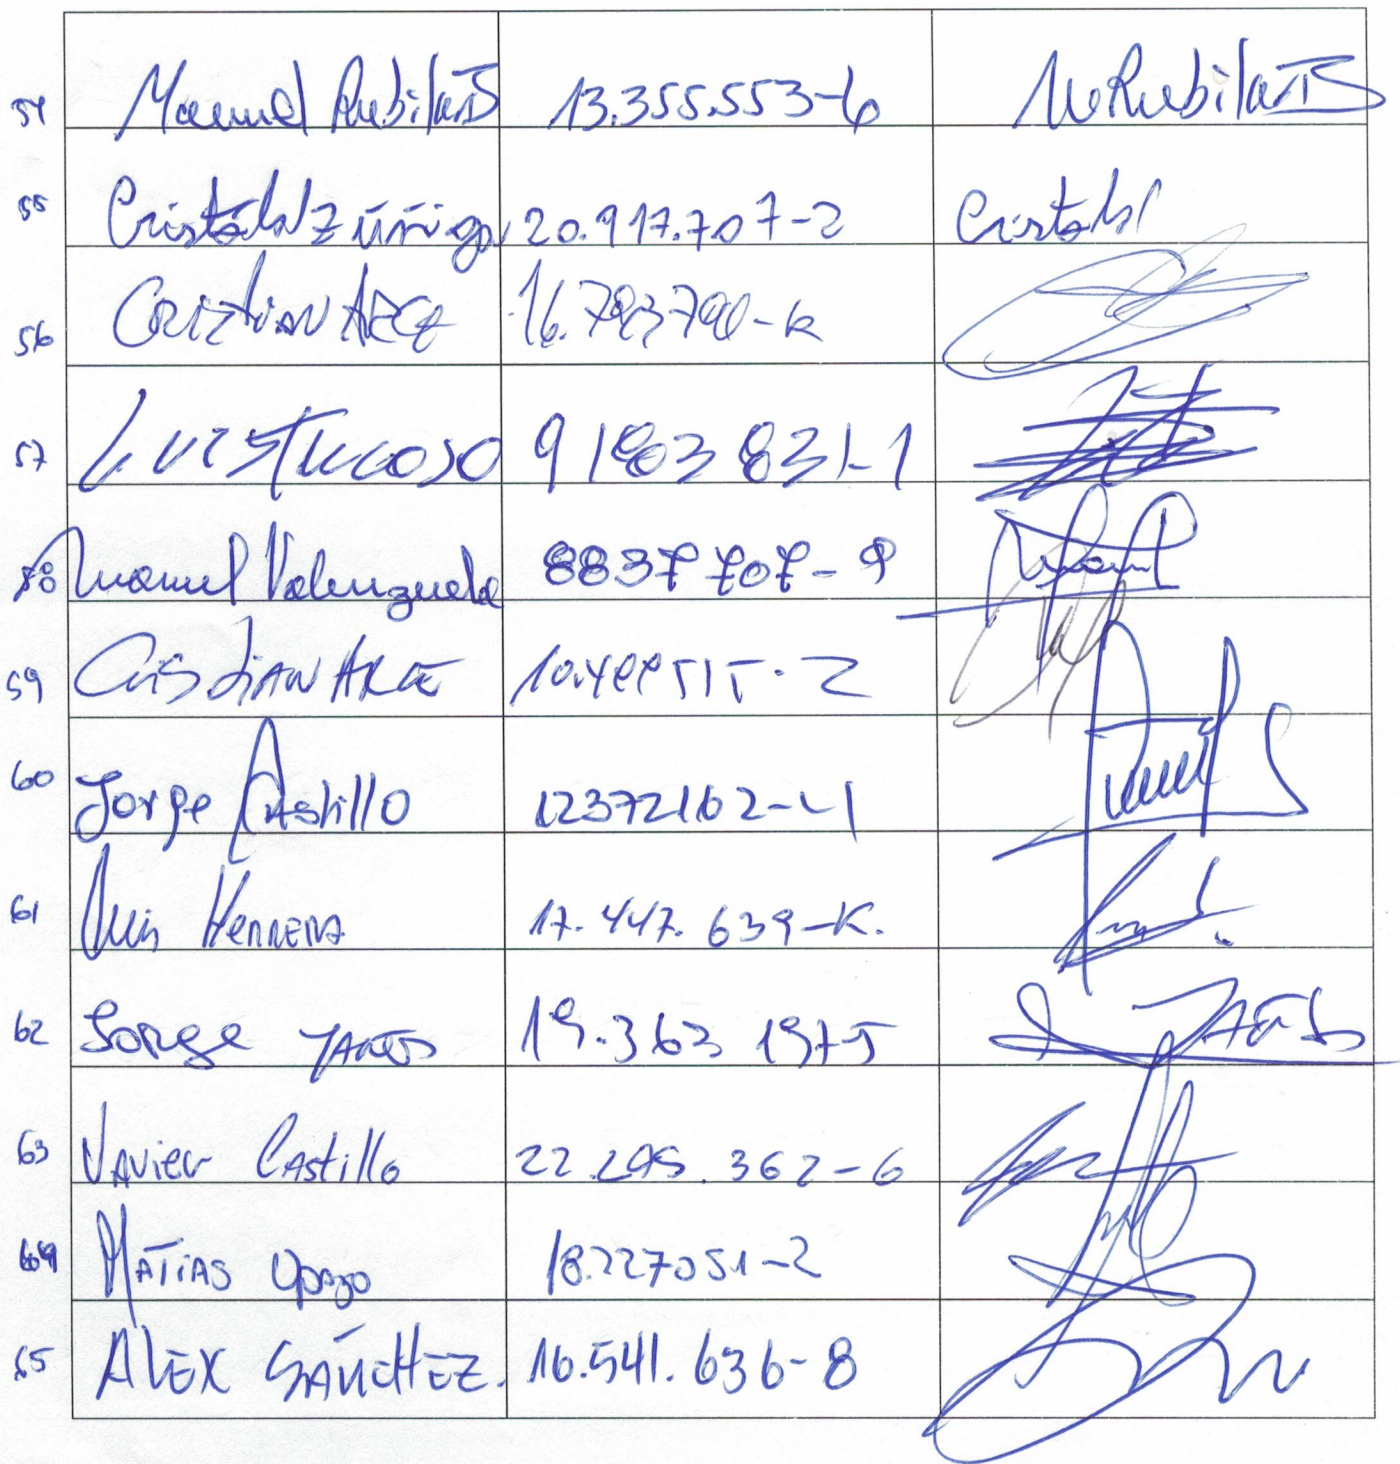 54 Manuel Rubilar B 13.355.553-6 M Rubilar B
55 Cristóbal Zúñiga 20.917.707-2 Cristóbal
56 Cristian Arce 16.793790-K
57 Luis Tucoso 9 1803 831-1
58 Manuel Valenzuela 8837707-9
59 Cristian Arce
60 Jorge Castillo 12372162-4
61 Luis Herrera 17.447.639-K.
62 Jorge Yañes 19.363 197-5 J Yañes
63 Javier Castillo 22.295.362-6
64 Matias Opazo 18.227051-2
65 ALEX SÁNCHEZ. 16.541.636-8